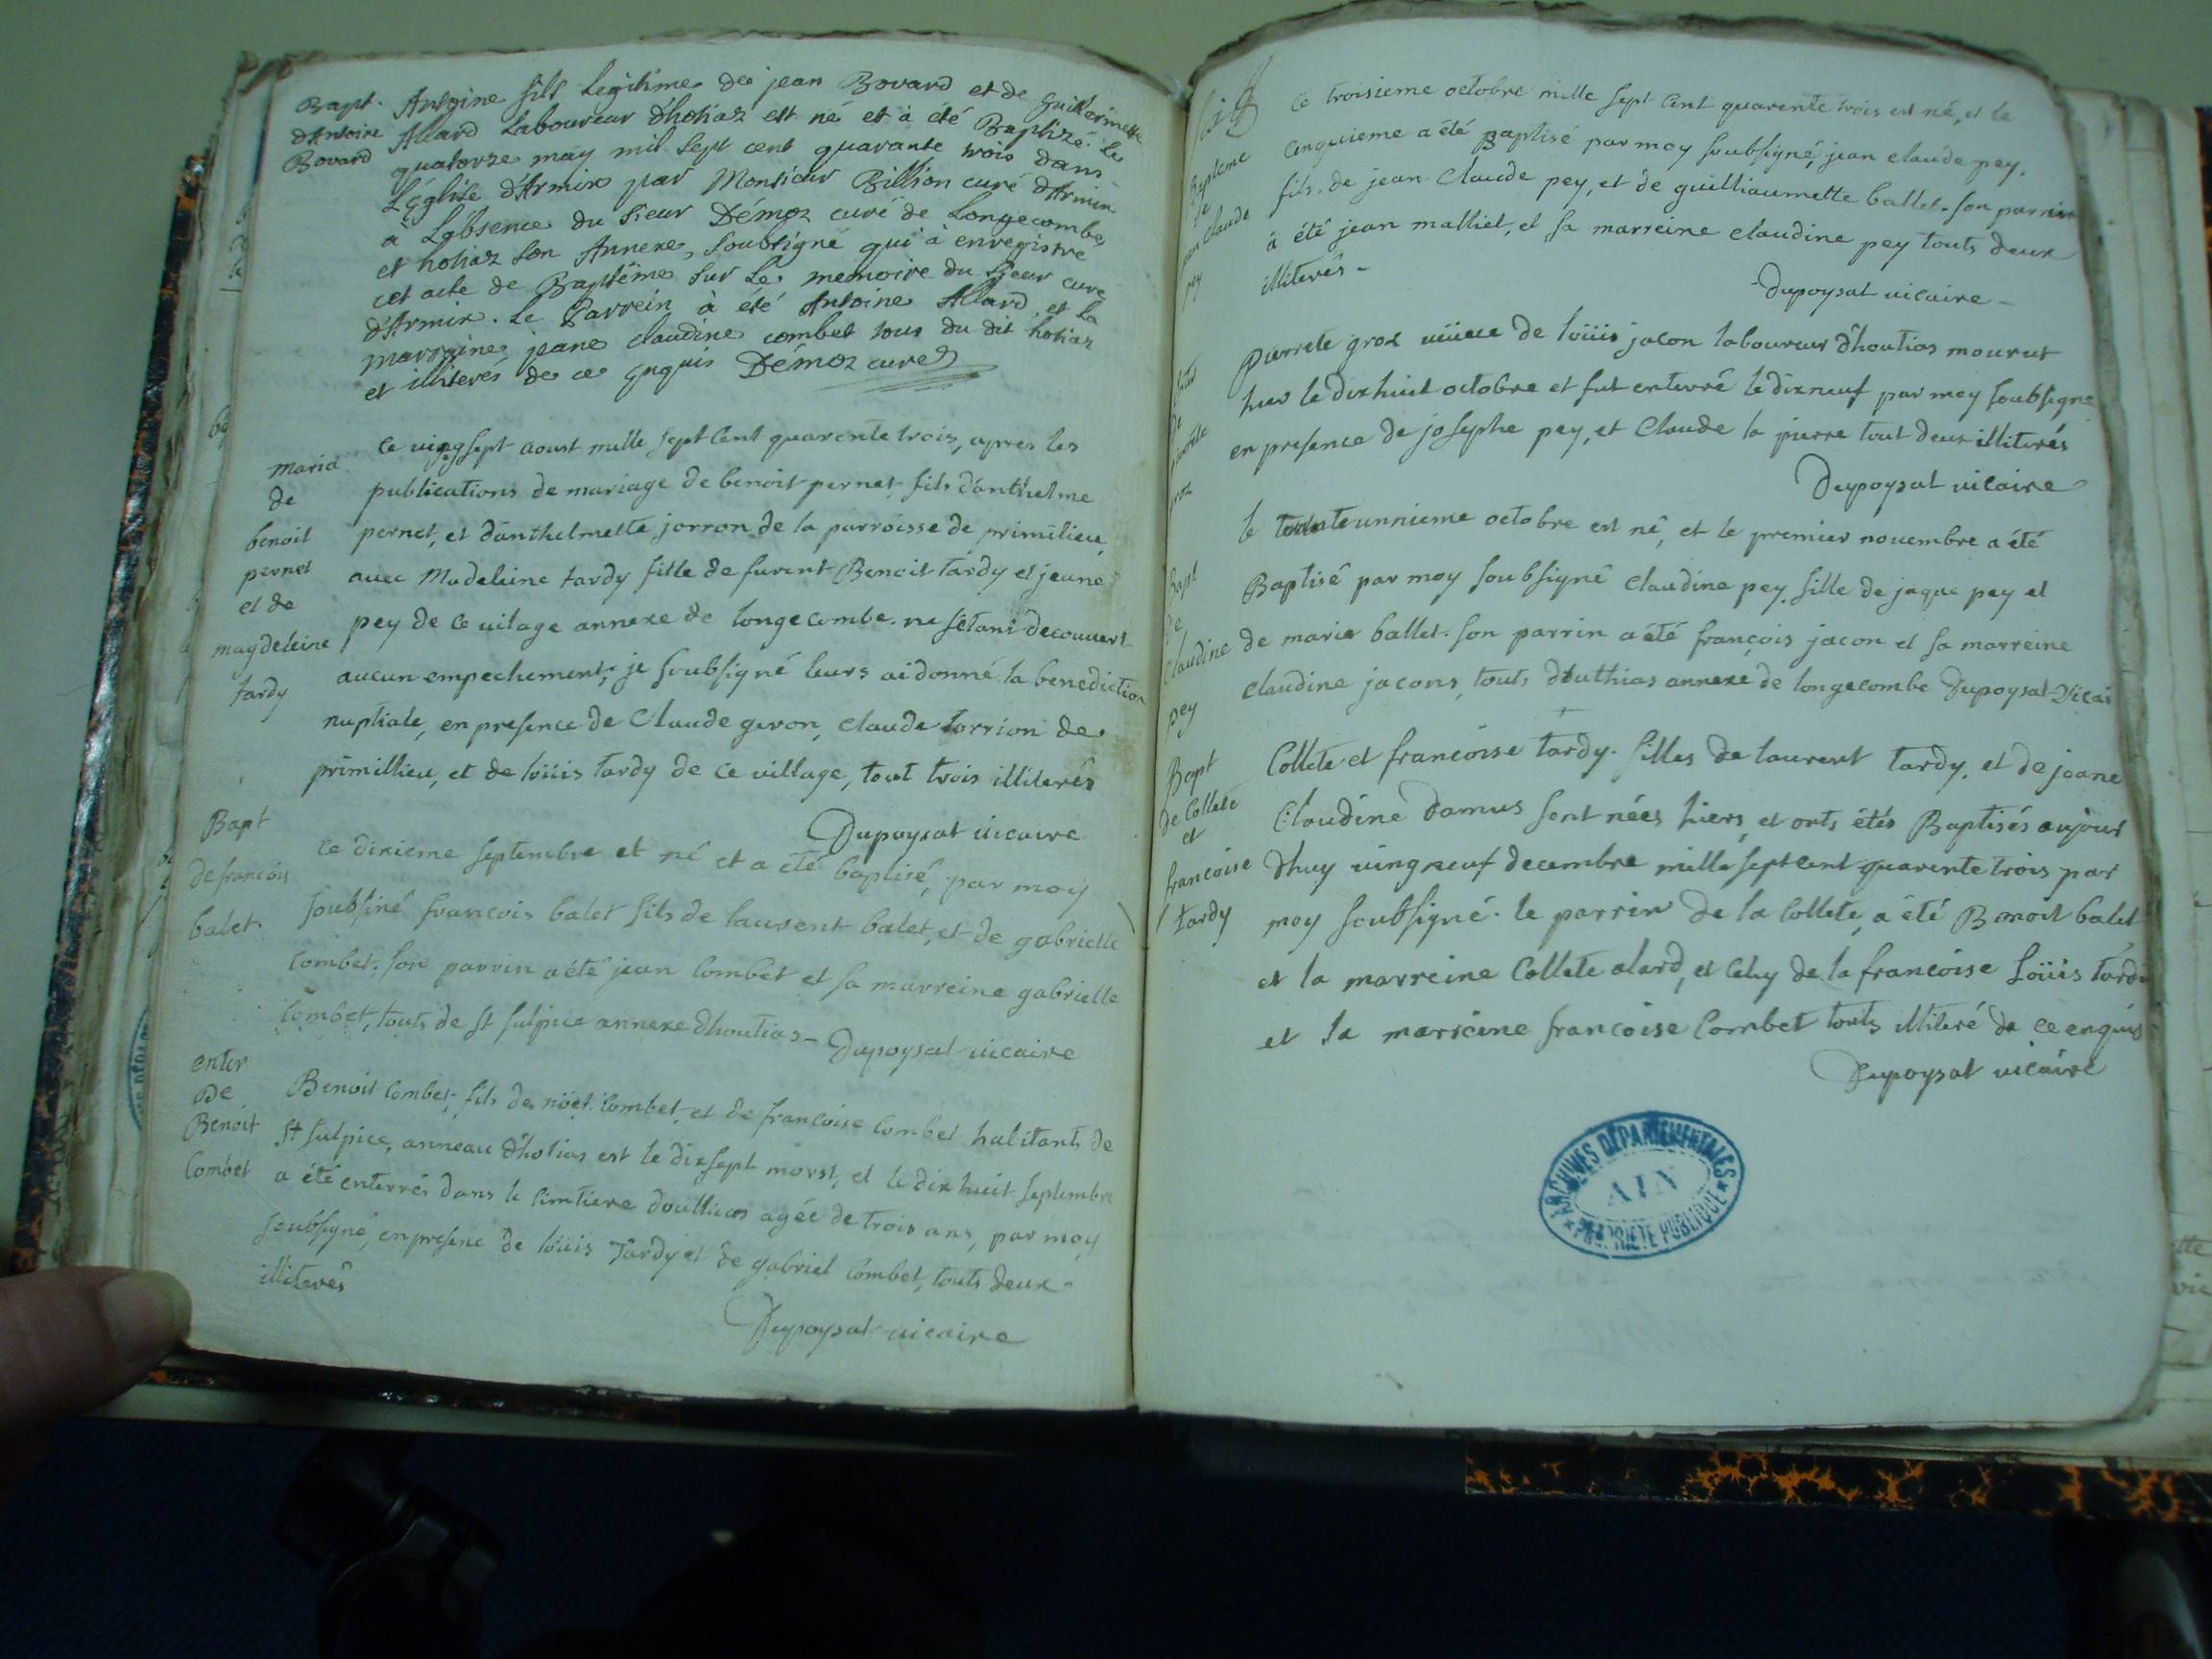 Bapt.
d'Antoine
Bovard
Antoine fils Legitime de jean Bovard et de Guillermette
Allard Laboureur d'hotiaz est né et à été Baptizé Le
quatorze may mil sept cent quarante trois dans
L'église d'Armix par Monsieur Billion curé d'Armix
à L'absence du sieur Démoz curé de Longecombe
et hotiaz son Annexe, soubsigné qui à enregistré
cet acte de Baptême sur Le memoire du sieur curé
d'Armix. Le Parrein à été Antoine Allard et La
marraine jeane claudine combet tous du dit hotiaz
et illiteres de ce enquis Démoz curé
maria
de
benoit
pernet
et de
magdeleine
tardy
Ce vingsept aoust mille sept cent quarente trois, apres les
publications de mariage de benoit pernet, fils d'anthelme
pernet, et d'anthelmette jorron de la parroisse de primilieu,
avec Madeleine tardy fille de furent Benoit tardy et jeane
pey de ce vilage annexe de longecombe. ne s'etant decouvert
aucun empechement, je soubsigné leurs ai donné la benediction
nuptiale, en presence de Claude geron, claude torrion de
primillieu, et de loüis tardy de ce village, tout trois illiterés
Dupoysat vicaire
Bapt
de francois
balet
Ce dixieme septembre et né et a été baptisé, par moy
soubsiné francois balet fils de laurent balet, et de gabrielle
Combet. son parrin a été jean Combet et sa marreine gabrielle
Combet, touts de st sulpice annexe dhoutias – Dupoysat vicaire
enter
De
Benoit
Combet
Benoit Combet, fils de nöel Combet, et de francoise Combet habitants de
st sulpice, anneau d'hotias est le dixsept morst, et le dix huit septembre
a été enterrés dans le simtiere doultias agée de trois ans, par moy
soubsigné, en presene de loüis Tardy et de gabriel Combet, touts deux
illiterés
Dupoysat vicaire
Bapteme
de
jean claude
pey
Ce troisieme octobre mille sept cent quarente trois est né, et le
cinquieme a été Baptisé par moy soubsigné, jean claude pey,
fils de jean Claude pey, et de guilliaumette ballet. son parrin
à été jean malliet, et sa marreine claudine pey touts deux
illiterés –
Dupoysat vicaire –
de
pierrete
groz
Pierrete groz veüve de loüis jacon laboureur d'houtias mourut
hier le dixhuit octobre et fut enterré le dixneuf par moy soubsigne
en presence de josephe pey, et Claude la pierre tout deux illiterés
Dupoysat vicaire
Bapt
de
Claudine
pey
le trenteunnieme octobre est né, et le premier novembre a été
Baptisé par moy soubsigné Claudine pey fille de jaque pey et
de marie ballet. son parrin a été françois jacon et sa marreine
claudine jacons, touts d'outhias annexe de longecombe Dupoysat Vicai
Bapt
de Collete
et
francoise
tardy
Collete et francoise tardy. filles de laurent tardy, et de jeane
Claudine Damus sont nées hiers, et onts étés Baptisés aujour
dhuy vingneuf decembre mille sept cent quarente trois par
moy soubsigné. le parrin de la Collete, a été Benoit balet
et la marreine Collete alard, et Celuy de la francoise Loüis tardi
et la marreine francoise Combet touts illiteré de ce enquis
Dupoysat vicaire
ARCHIVES DÉPARTEMENTALES
AIN
PROPRIETE PUBLIQUE